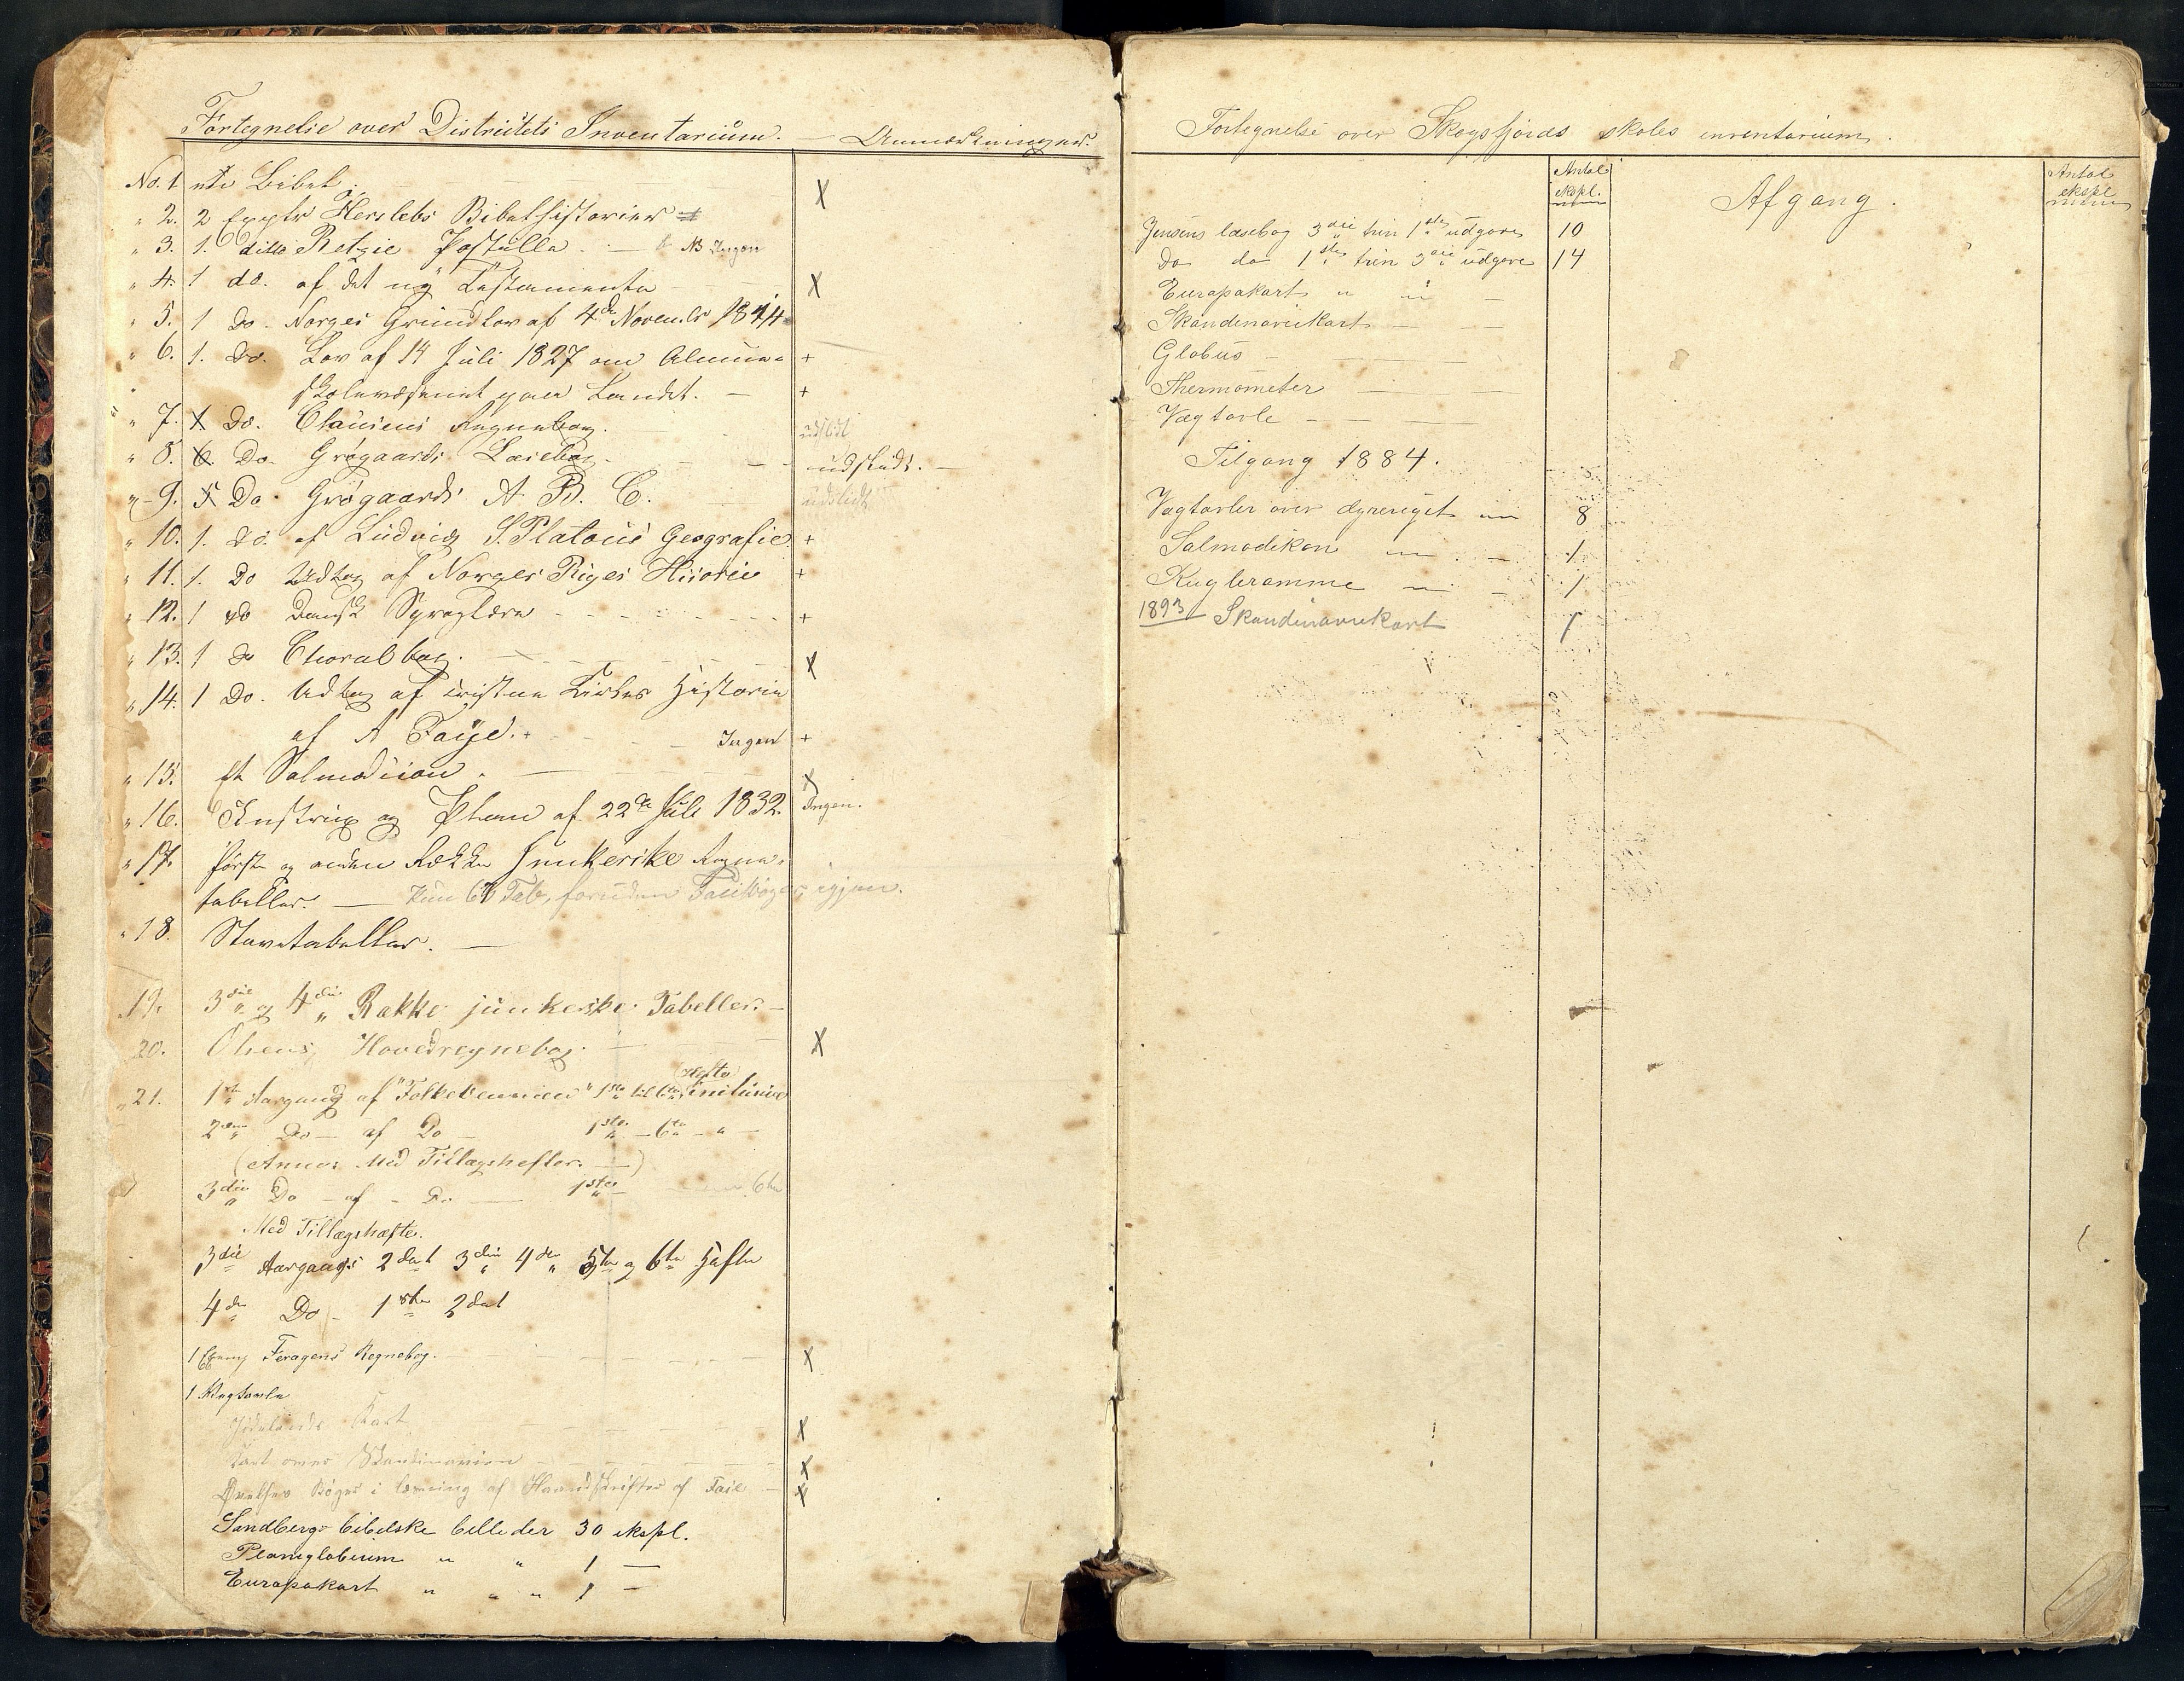 Fortegnelse over Districtets Inventarium. — Anmærkninger.
No. 1 Bibel. X
" 2. 2 Herslebs Bibelhistorier
" 3. 1. ditto Retzie Postille. — NB Ingen
" 4. 1 do. af det ny Testamente X
" 5. 1 Do. Norges Grundlov af 4de Novemb. 1814
" 6. 1. Do. Lov af 14 Juli 1827 om Almue= +
skolevæsenet paa Landet. — +
" 7. Do. Clausens Regnebog. udslidt
" 8. 6. Do. Grøgaards Læsebog. — udslidt. —
" 9. 5 Do. Grøgaards A. B. C. udslidt
" 10. 1. Do. af Ludvig S. Platous Geografie +
" 11. 1. Do Udtog af Norges Riges Historie +
" 12. 1 do Dansk Sproglære +
" 13. 1 Do Choralbog. X
" 14. 1 Do. Udtog af cristne Kirkes Historie
af A Faye. Ingen +
" 15. Et Salmodicon. X
" 16. og Plan af 22de Juli 1832. Ingen.
" 17. Første og anden Række Junkerske Regne=
tabeller. — Kun Tab, foruden Facitbøger igjen.
" 18. Stavetabeller. —
19. 3die og 4die Række junkerske Tabeller. —
20. Olsens Hovedregnebog. X
(Hefte)
" 21. 1ste Aargang af "Folkevennen" 1ste til 6te inclusive
2den Do — af Do — 1ste — 6te — " —
(Med Tillægshefter. —)
3die Do — af — Do — 1ste — 6te
Med Tillægshæfte.
3die Aargangs 2det 3die 4de 5te og 6te Hefte
4de Do — 1ste 2det
1 Feragens Regnebog. X
1 Vægtavle
Kart X
Kart over Skandinavien X
Bøger i læsning af Haandskrifter af X
Sandbergs bibelske billeder 30 ekspl.
Planiglobium " " 1 —
Europakart " " " 1 —
Fortegnelse over Skogsfjords skoles inventarium.
Antal ekspl. Afgang. Antal ekspl
Jensens læsebog 3die trin 1ste udgave 10
Do do 1ste trin 3die udgave 14
Europakart " " —
Skandinaviekart — —
Globus —
Thermometer — —
Vægtavle — — —
Tilgang 1884.
Vægtavler over dyreriget 8
Salmodikon — 1
Kugleramme — 1
1893 Skandinaviekart 1